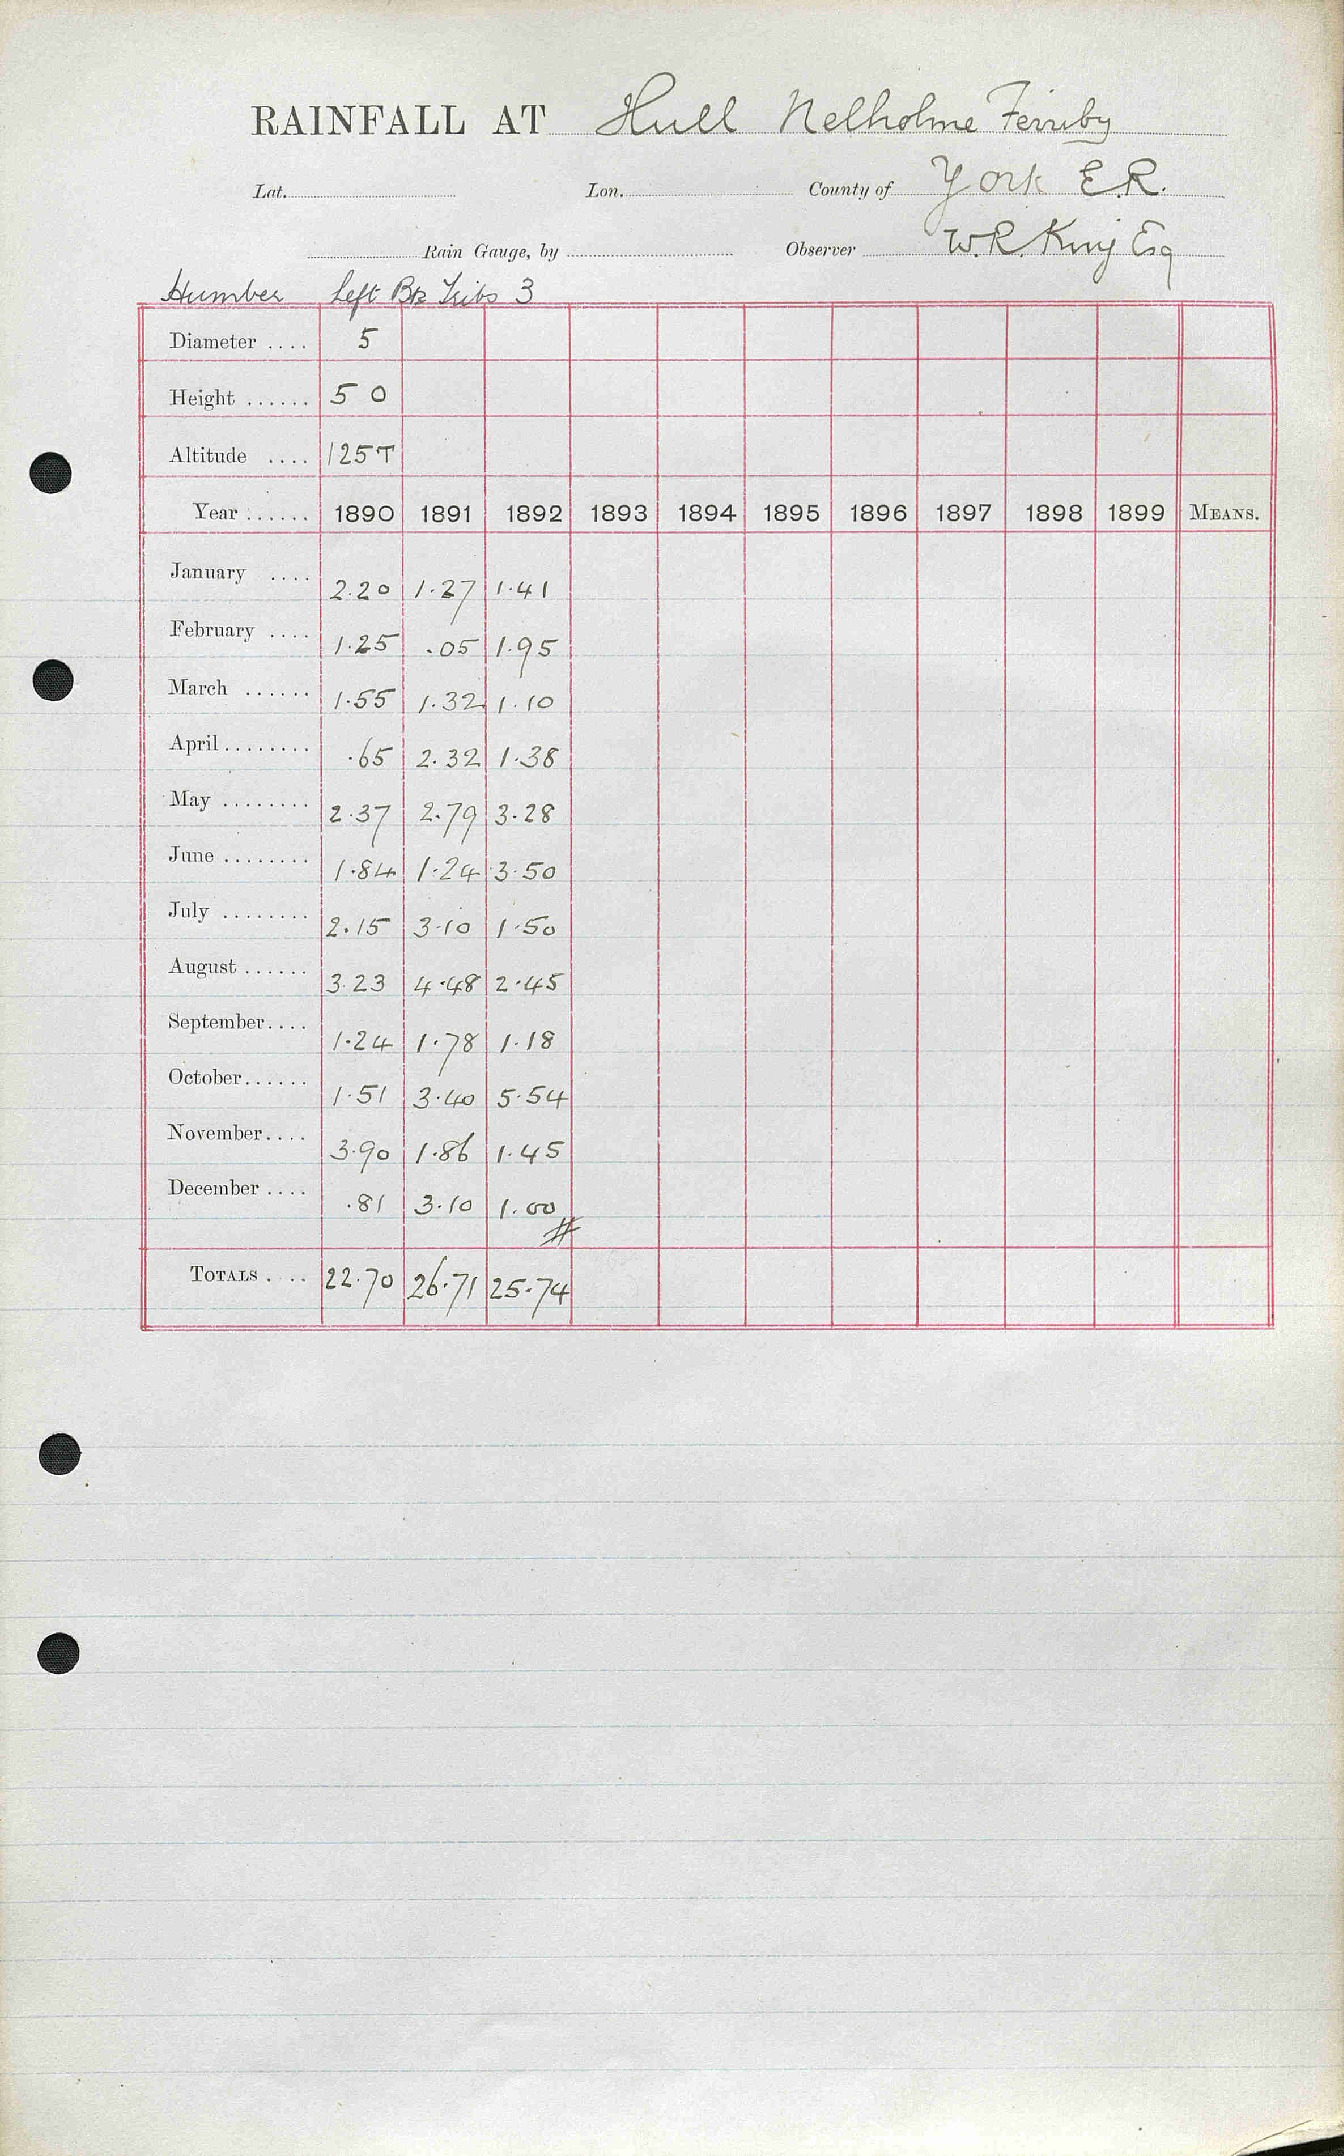 RAINFALL AT Hull Nelholme Ferriby
Lat. Lon. County of York E.R.
Rain Gauge, by Observer W.R. King Esq
Humber Left Bk Tribs 3
Diameter .... 5
Height ...... 5 0
Altitude .... 125T
Year ...... 1890 1891 1892 1893 1894 1895 1896 1897 1898 1899 MEANS.
January .... 2.20 1.27 1.41
February .... 1.25 .05 1.95
March ...... 1.55 1.32 1.10
April ........ .65 2.32 1.38
May ........ 2.37 2.79 3.28
June ........ 1.84 1.24 3.50
July ........ 2.15 3.10 1.50
August ...... 3.23 4.48 2.45
September.... 1.24 1.78 1.18
October...... 1.51 3.40 5.54
November.... 3.90 1.86 1.45
December .... .81 3.10 1.00
#
TOTALS .... 22.70 26.71 25.74